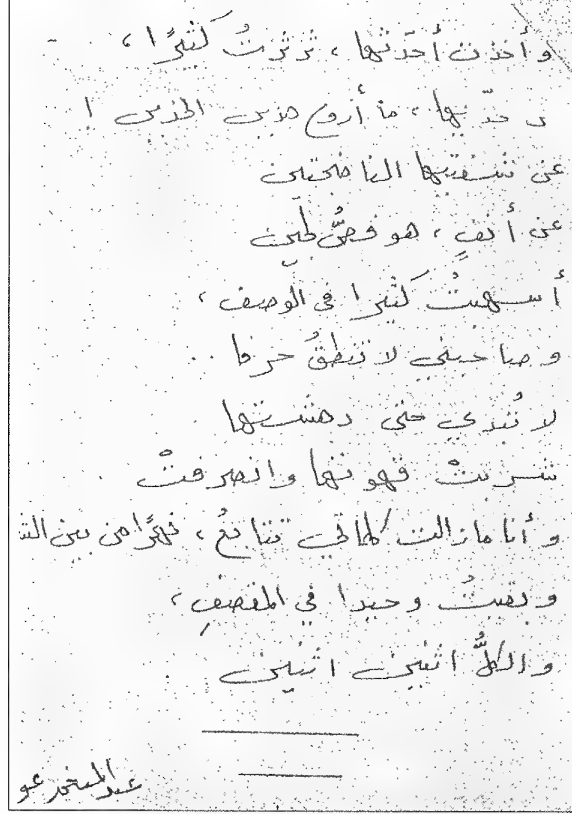 وأخذت أحدّثها، ثرثرتُ كثيرًا،
خدّيها، ما أروع هذين الخدين !
عن شفتيها الناضجتين
عن أنفٍ، هو فصُّ لجين
أسهبتُ كثيرا في الوصف،
وصاحبتي لا تنطقُ حرفا . .
لا تُبدي حتى دهشتها
شربتْ قهوتها وانصرفتْ
وأنا مازالت كلماتي تتتابعُ، نهرًا من بين
وبقيتُ وحيدا في المقصفِ،
والكلُّ اثنين اثنين
عبدالمنعم عو